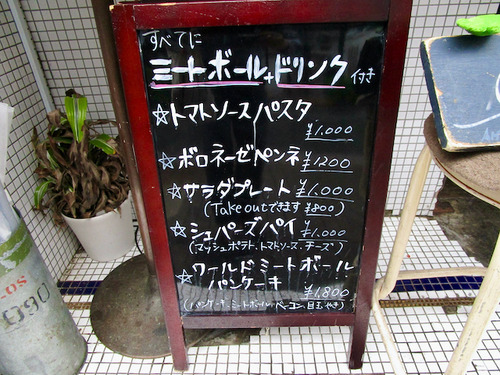 すべてに
ミートボール+ドリンク 付き
☆トマトソースパスタ
¥1.000
☆ボロネーゼペンネ ¥1200
☆サラダプレート ¥1.000
(Take outできます ¥800)
☆シュパーズパイ ¥1.000
(マッシュポテト、トマトソース、チーズ)
☆ワールドミートボール
パンケーキ ¥1,800
(パンケーキ、ミートボール、ベーコン、目玉やき)